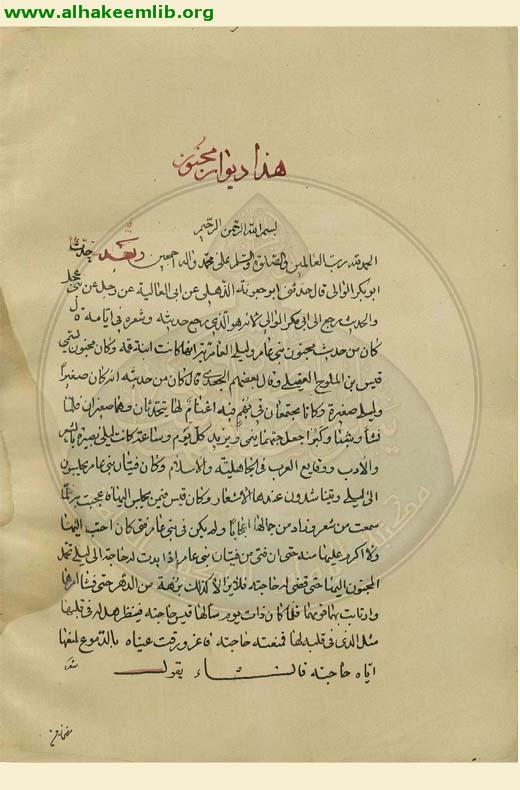 www.alhakeemlib.org
هذا ديوان مجنون
بسم الله الرحمن الرحيم
الحمد لله رب العالمين والصلوة والسلم على محمد واله اجمعين وبعد حدث
ابو بكر الوالبي قال حدثني ابو العالية عن رجل عن
والحديث رجع الى ابي بكر الوالبي لانه هو الذي رجع حديثه وشعره في ايامه
كان من حديث مجنون بني عامر وليلى العامرية انها كانت ابنة وكان مجنون يسمى
قيس بن الملوح العقيلي وقال بعضهم الجعدي قال كان من حديثه انه كان صغيرا
وليلى صغيرة وكانا يجتمعان في فيه اغنام لها يتحدثان وهما صغيران فلما
نشأ وكبرا جعل حبهما ينمى ويزيد كل يوم وساعة وكانت ليلى بصيرة بالشعر
والادب ووقايع العرب في الجاهلية والاسلام وكان فتيان بني عامر يجلسون
الى ليلى وينشدون عندها الاشعار وكان قيس فيمن يجلس اليها
سمعت من شعره زاد من جمالها ولم يكن في بني عامر فتى كان احب اليها
ولا اكرم عليها منه حتى ان فتى من فتيان بني عامر اذا بدت له حاجة الى ليلى
المجنون اليها حتى قضى له حاجته فلم يزالا كذلك برهة من الدهر حتى فشا امرهما
وارتابت بهما قومهما فلما كان ذات يوم سالها قيس حاجته فينظر هل له في قلبها
مثل الذي في قلبه لها فمنعته حاجته فاغرورقت عيناه بالدموع لمنعها
اياه حاجته فانشاء يقول